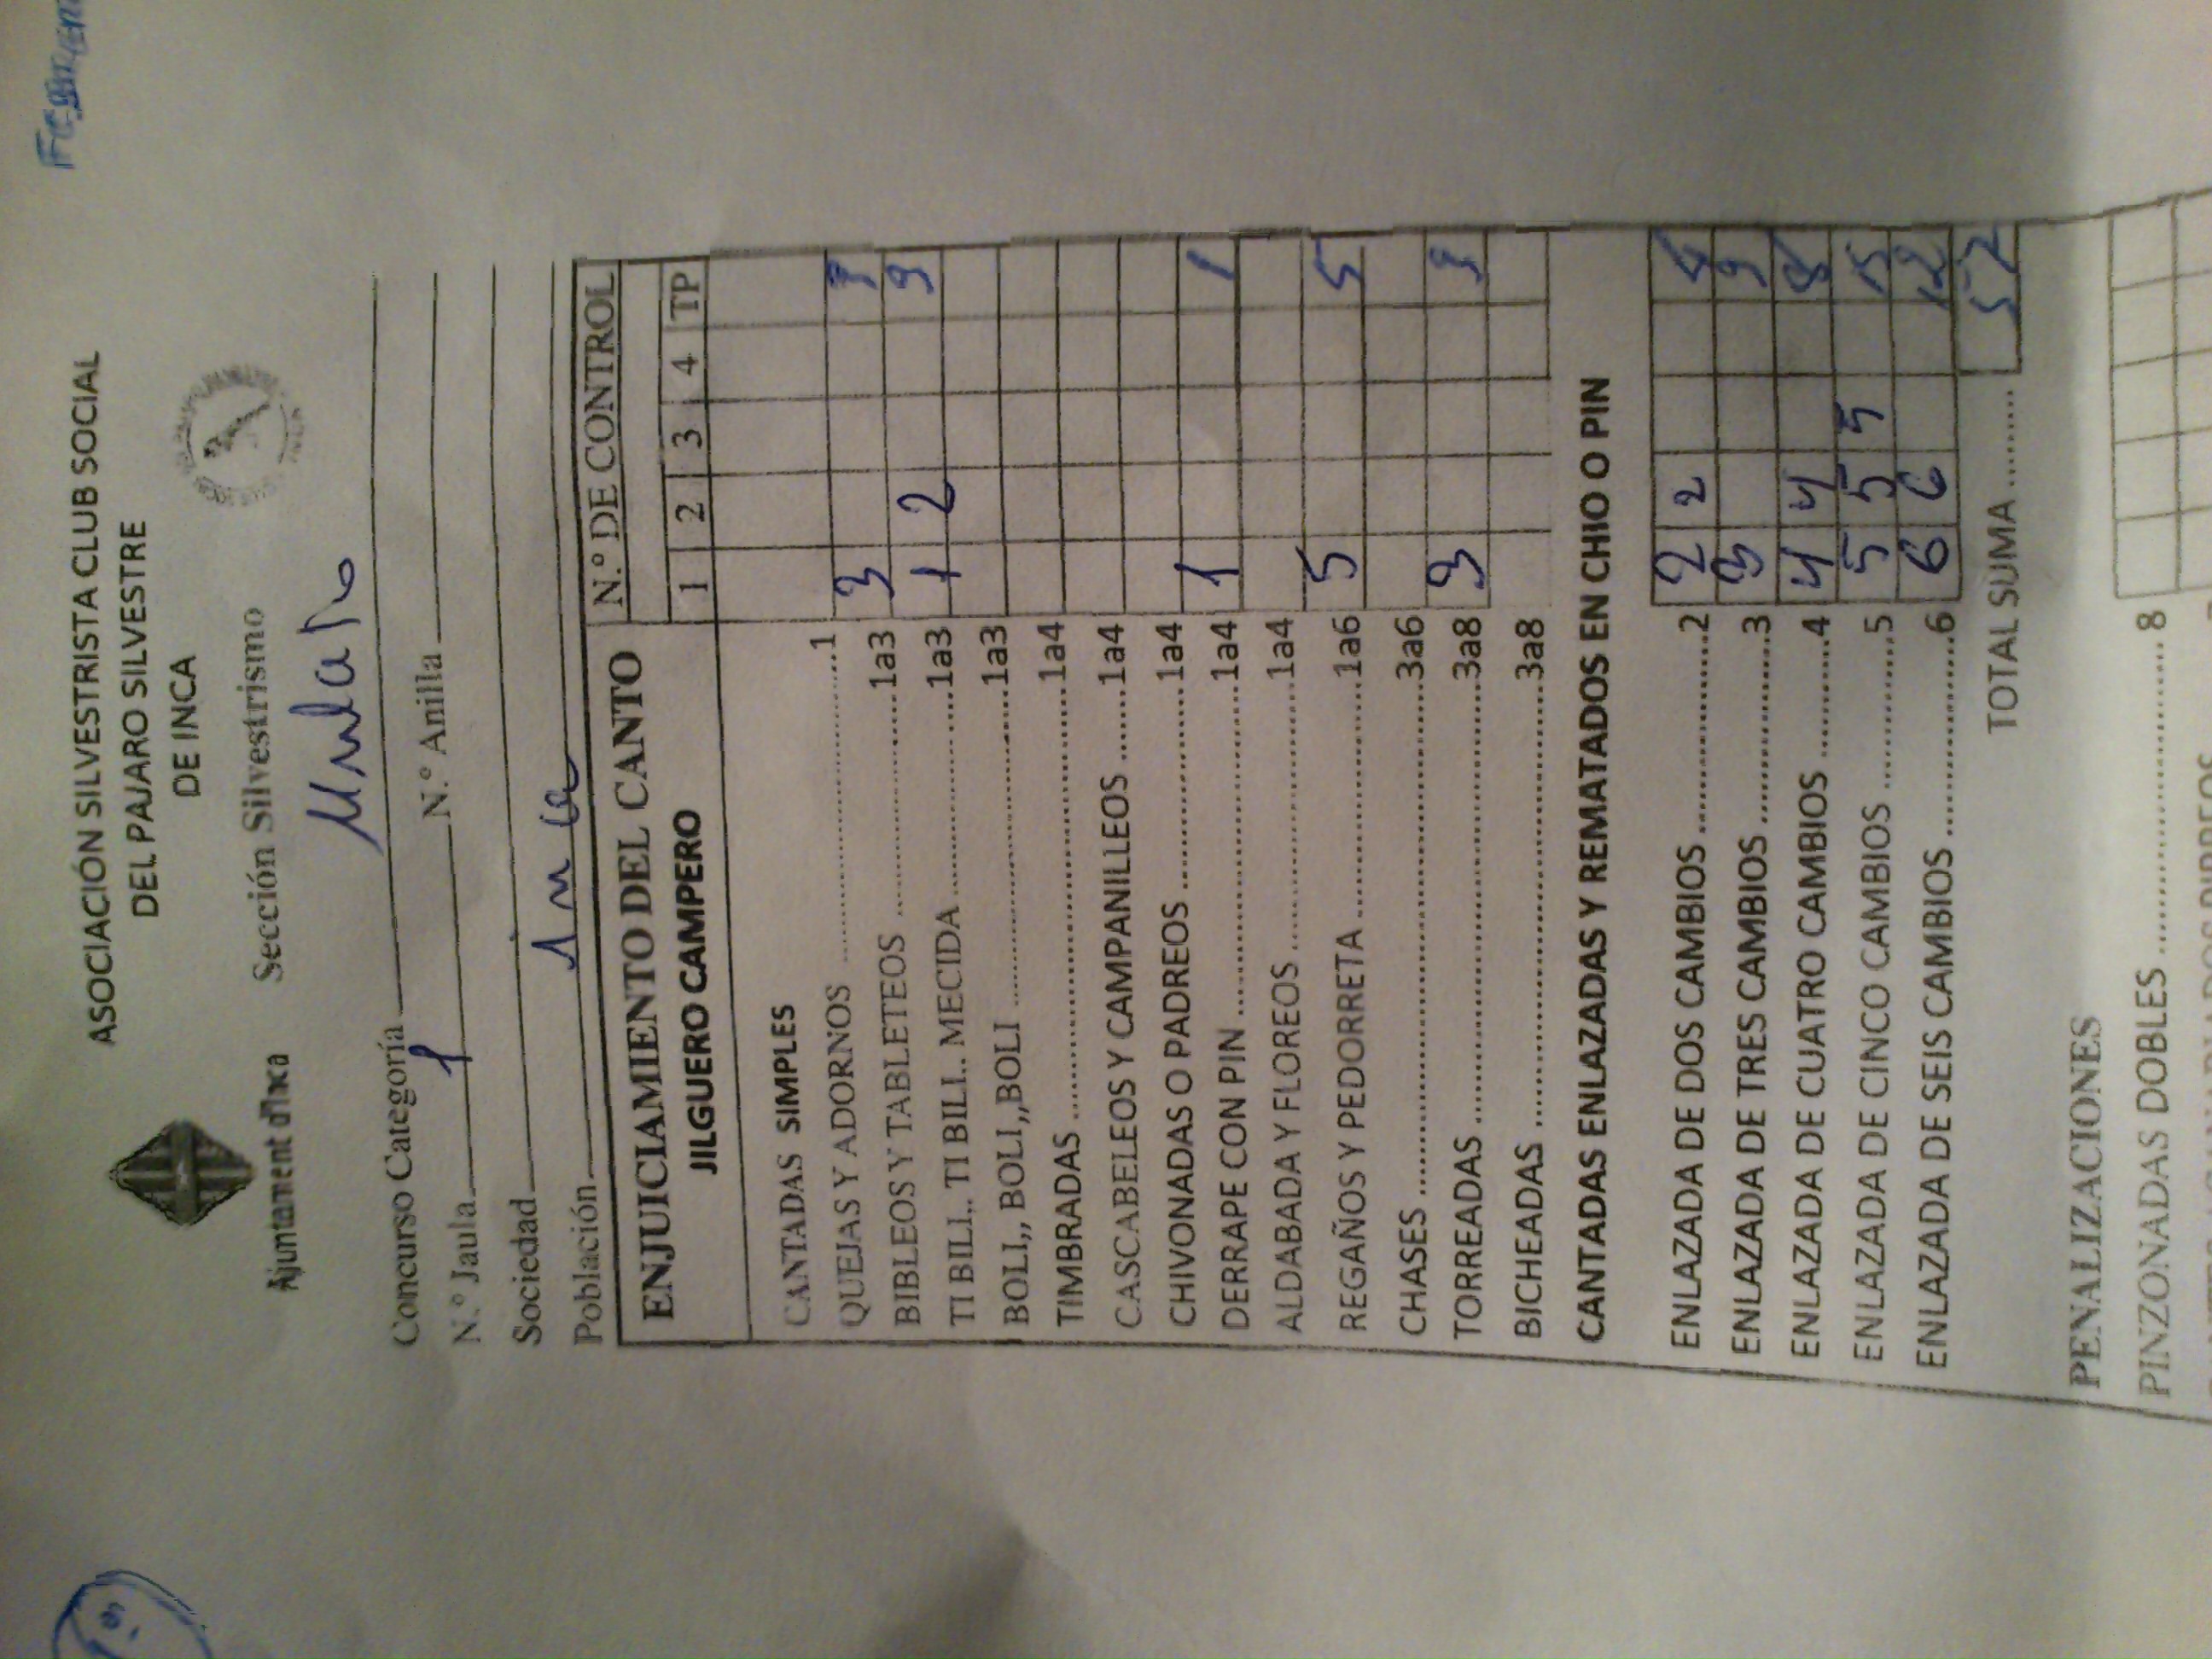 ASOCIACIÓN SILVESTRISTA CLUB SOCIAL
DEL PAJARO SILVESTRE
DE INCA
Ajuntament d'Inca
Sección Silvestrismo
Mulato
Concurso Categoría
N.º Jaula 1 N.º Anilla
Sociedad
Población Inca
ENJUICIAMIENTO DEL CANTO N.º DE CONTROL
JILGUERO CAMPERO 1 2 3 4 TP
CANTADAS SIMPLES
QUEJAS Y ADORNOS ..........1
BIBLEOS Y TABLETEOS ..........1a3 3 3
TI BILI.. TI BILI.. MECIDA..........1a3 1 2 3
BOLI,, BOLI,,BOLI ..........1a3
TIMBRADAS..........1a4
CASCABELEOS Y CAMPANILLEOS ..........1a4
CHIVONADAS O PADREOS..........1a4
DERRAPE CON PIN..........1a4 1 1
ALDABADA Y FLOREOS..........1a4
REGAÑOS Y PEDORRETA..........1a6 5 5
CHASES..........3a6
TORREADAS..........3a8 3 3
BICHEADAS..........3a8
CANTADAS ENLAZADAS Y REMATADOS EN CHIO O PIN
ENLAZADA DE DOS CAMBIOS..........2 2 2 4
ENLAZADA DE TRES CAMBIOS..........3 3 3
ENLAZADA DE CUATRO CAMBIOS..........4 4 4 8
ENLAZADA DE CINCO CAMBIOS..........5 5 5 5 15
ENLAZADA DE SEIS CAMBIOS..........6 6 6 12
TOTAL SUMA ......... 52
PENALIZACIONES
PINZONADAS DOBLES..........8